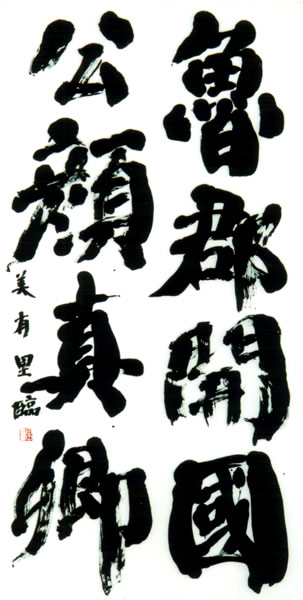 魯郡開國
公顔真卿
美有里臨